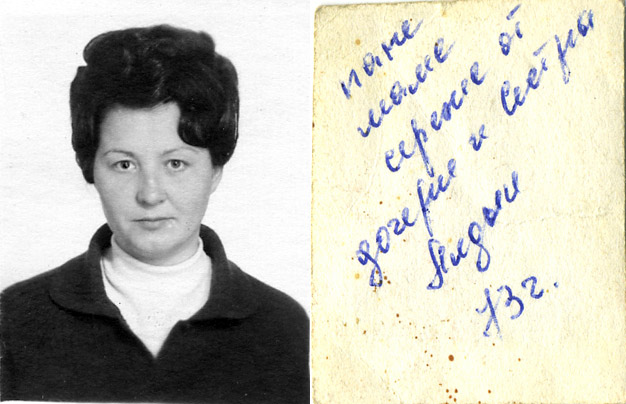 папе
маме
сереже от
дочери и Сестры
Лиды
73 г.